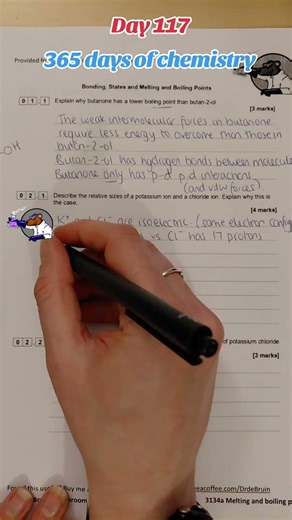 Day 117
365 days of chemistry
Provided
Bonding, States and Melting and Boiling Points
01 1 Explain why butanone has a lower boiling point than butan-2-ol.
[3 marks]
The weak intermolecular forces in butanone
require less energy to overcome than those in
butan-2-ol
OH
Butan-2-ol has hydrogen bonds between molecule
Butanone only has p-d p.d interaction
(and vdw forces)
02 1 Describe the relative sizes of a potassium ion and a chloride ion. Explain why this is
the case.
[4 marks]
K+ and Cl- are isoelectric (same electron config
vs Cl- has 17 protons
02 2
of potassium chloride
[3 marks]
Found this useful? Buy me a
eeacoffee.com/DrdeBruin
room
3134a Melting and boiling p